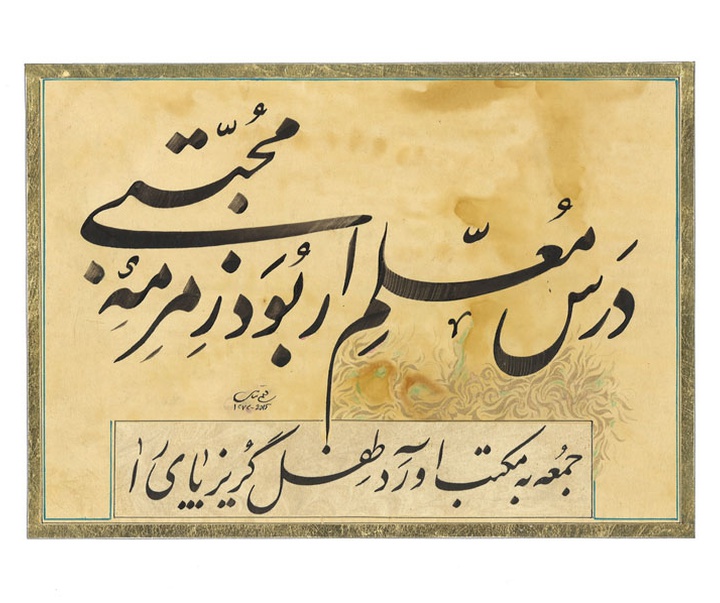 دَرس مُعلّمِ ار بُوَد زِمزِمهٔ مُحبّتی
جمُعه به مکتب آوَرَد طِفل گُریزپای را